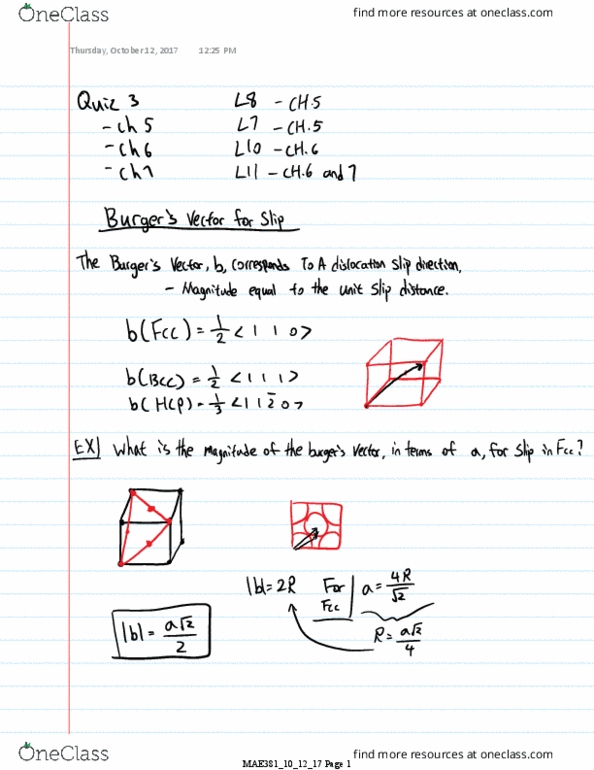 OneClass find more resources at oneclass.com
Thursday, October 12, 2017 12:25 PM
Quiz 3 L8 - CH.5
- ch 5 L7 - CH.5
- ch 6 L10 - CH.6
- ch 7 L11 - CH.6 and 7
Burger's Vector for Slip
The Burger's Vector, b, corresponds To A dislocation slip direction,
- Magnitude equal to the unit slip distance.
b(Fcc) = 1/2 < 1 1 0 >
b(Bcc) = 1/2 < 1 1 1 >
b(HCP) = 1/3 < 1 1 2̄ 0 >
EX What is the magnitude of the burger's vector, in terms of a, for slip in Fcc?
|b| = 2R For Fcc a = 4R/√2
|b| = a√2/2 R = a√2/4
OneClass find more resources at oneclass.com
MAE381_10_12_17 Page 1